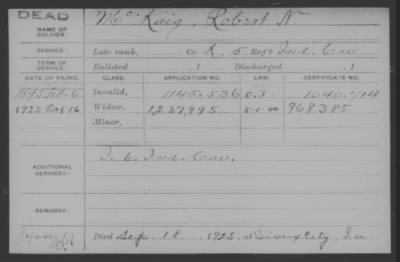 DEAD
NAME OF SOLDIER: McKaig, Robert N.
SERVICE: Late rank, Co. K, 5 Reg't Ind. Cav.
TERM OF SERVICE: Enlisted , 1 Discharged , 1
DATE OF FILING. CLASS. APPLICATION NO. LAW. CERTIFICATE NO.
Invalid, 1145.536
1925 Oct 16 Widow, 1,237,995 5-1-20 968385
Minor,
ADDITIONAL SERVICES: Ind. Cav.
REMARKS:
Died Sep. 18, 1925, at Sioux City, Ia.